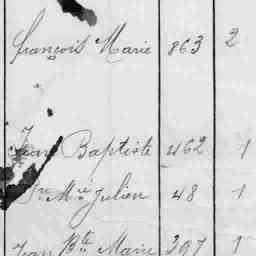 François Marie 863 2
Jean Baptiste 462 1
Jn Mie Julien 48 1
Jean Bte Marie 397 1